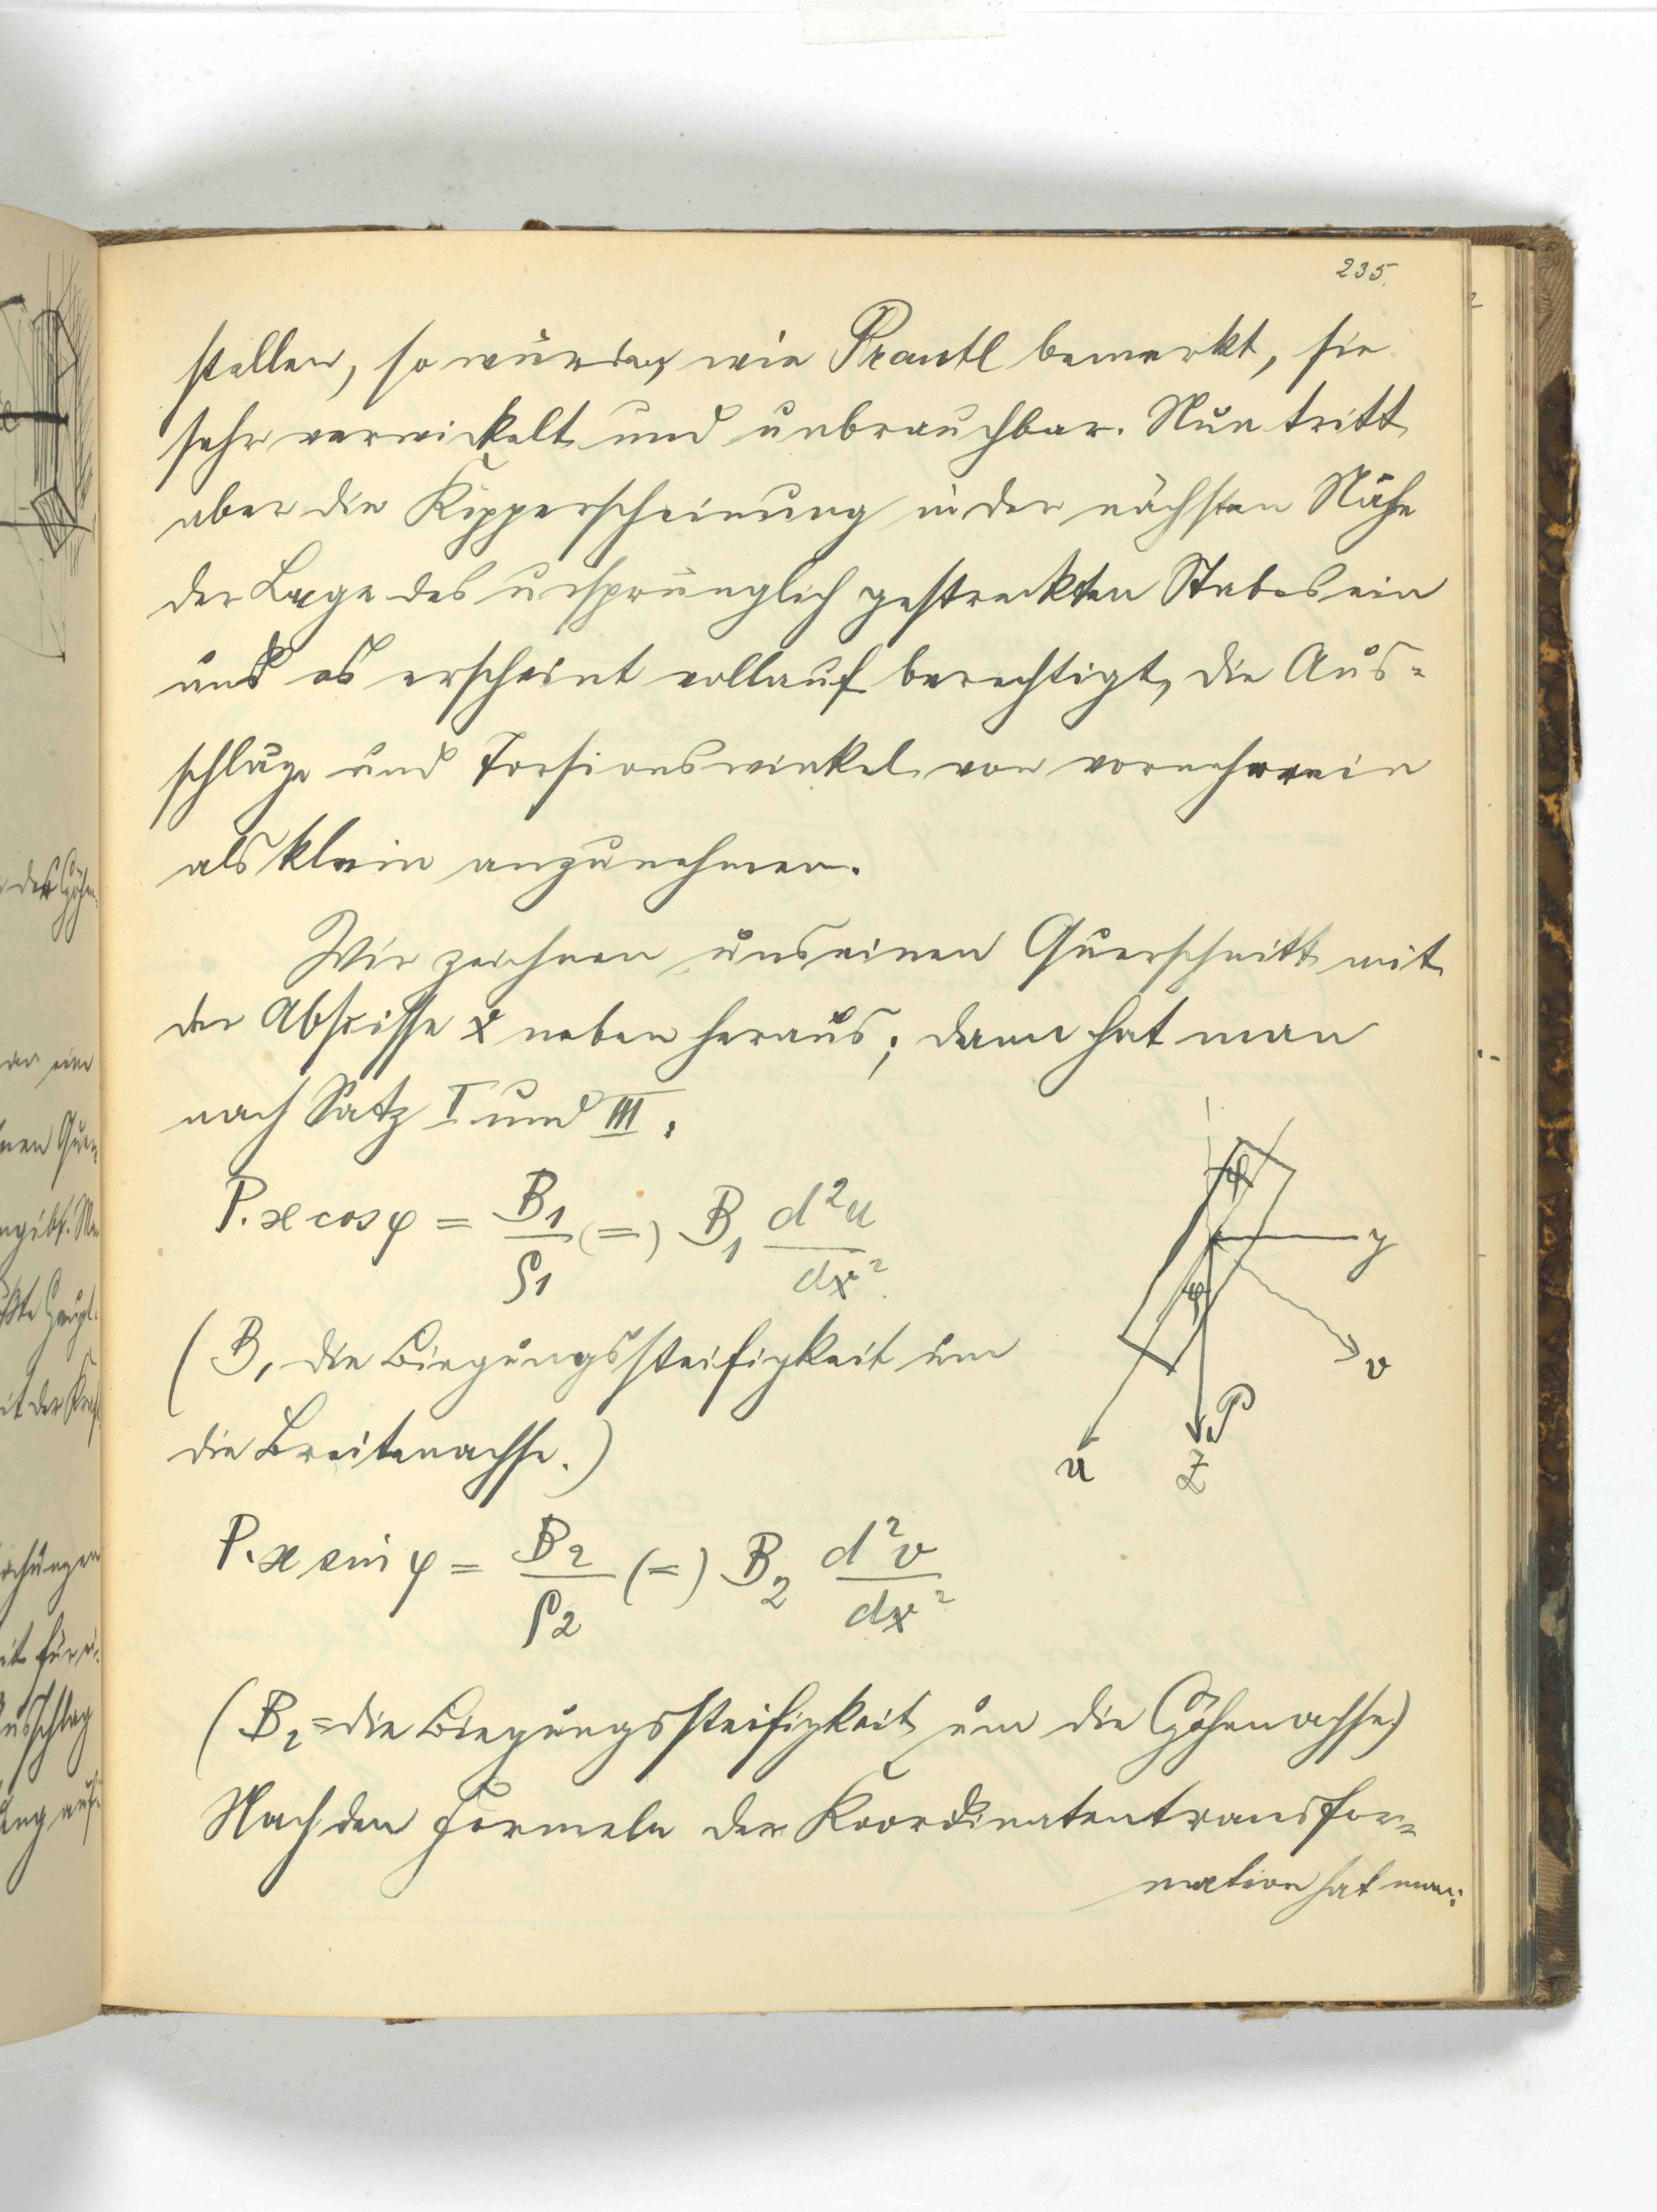 235.
stellen, so würden, wie Prantl bemerkt, sie
sehr verwickelt und unbrauchbar. Nun tritt
aber die Kipperscheinung in der nächsten Nähe
der Lage des ursprünglich gestreckten Stabes ein
und es erscheint vollauf berechtigt, die Aus=
schläge und Torsionswinkel von vorneherein
als klein anzunehmen.
Wir zeichnen uns einen Querschnitt mit
der Abscisse x neben heraus; dann hat man
nach Satz I und III:
P. x cos φ = B1/ρ1 (=) B1 d²u/dx²
(B1 die Biegungssteifigkeit um
die Breitenachse.)
P. x sin φ = B2/ρ2 (=) B2 d²v/dx²
(B2 = die Biegungssteifigkeit um die Höhenachse)
Nach den Formeln der Koordinatentransfor=
mation hat man:
φ
y
φ
v
P
u
Z